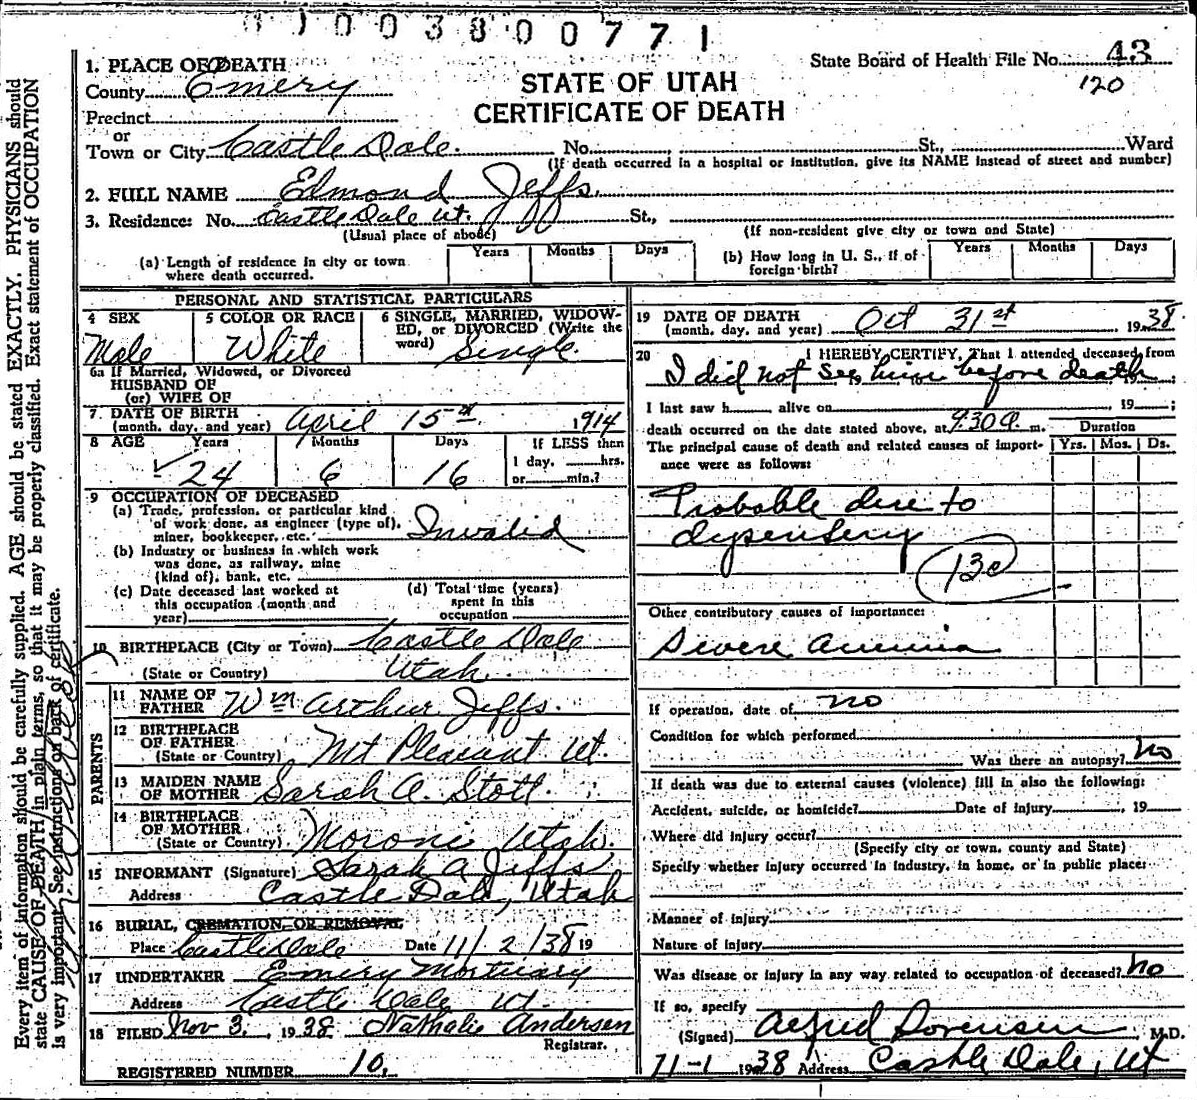 003800771
State Board of Health File No. 43
120
1. PLACE OF DEATH
County Emery
STATE OF UTAH
CERTIFICATE OF DEATH
Precinct
or
Town or City Castle Dale. No. St., Ward
(If death occurred in a hospital or institution, give its NAME instead of street and number)
2. FULL NAME Elmond Jeffs.
3. Residence: No. Castle Dale Ut. St.,
(Usual place of abode) (If non-resident give city or town and State)
(a) Length of residence in city or town where death occurred. Years Months Days
(b) How long in U. S., if of foreign birth? Years Months Days
PERSONAL AND STATISTICAL PARTICULARS
4 SEX Male
5 COLOR OR RACE White
6 SINGLE, MARRIED, WIDOWED, or DIVORCED (Write the word) Single
6a If Married, Widowed, or Divorced
HUSBAND OF
(or) WIFE OF
7 DATE OF BIRTH
(month, day, and year) April 15th 1914
8 AGE Years Months Days If LESS then
24 6 16 1 day, hrs.
or min.?
9 OCCUPATION OF DECEASED
(a) Trade, profession, or particular kind
of work done, as engineer (type of),
miner, bookkeeper, etc. Invalid
(b) Industry or business in which work
was done, as railway, mine
(kind of), bank, etc.
(c) Date deceased last worked at
this occupation (month and
year)
(d) Total time (years)
spent in this
occupation
10 BIRTHPLACE (City or Town) Castle Dale
(State or Country) Utah
PARENTS
11 NAME OF
FATHER Wm Arthur Jeffs.
12 BIRTHPLACE
OF FATHER
(State or Country) Mt Pleasant Ut.
13 MAIDEN NAME
OF MOTHER Sarah A. Stott.
14 BIRTHPLACE
OF MOTHER
(State or Country) Moroni Utah.
15 INFORMANT (Signature) Sarah A Jeffs
Address Castle Dale, Utah
16 BURIAL, CREMATION, OR REMOVAL
Place Castle Dale Date 11/2/38 19
17 UNDERTAKER Emery Mortuary
Address Castle Dale Ut.
18 FILED Nov 3, 1938 Nathalie Andersen
Registrar.
REGISTERED NUMBER 10.
19 DATE OF DEATH
(month, day, and year) Oct 31st 1938
20 I HEREBY CERTIFY, That I attended deceased from
I did not see him before death 19 ;
I last saw h alive on , 19 ;
death occurred on the date stated above, at 9:30 a. m. Duration
The principal cause of death and related causes of importance were as follows: Yrs. Mos. Ds.
Probable due to
dysentery
13c
Other contributory causes of importance:
Severe anemia
If operation, date of no
Condition for which performed
Was there an autopsy? no
If death was due to external causes (violence) fill in also the following:
Accident, suicide, or homicide? Date of injury , 19
Where did injury occur?
(Specify city or town, county and State)
Specify whether injury occurred in industry, in home, or in public place:
Manner of injury
Nature of injury
Was disease or injury in any way related to occupation of deceased? no
If so, specify
(Signed) Alfred Sorensen M.D.
11-1 1938 Address Castle Dale, Ut
Every item of information should be carefully supplied. AGE should be stated EXACTLY. PHYSICIANS should
state CAUSE OF DEATH in plain terms, so that it may be properly classified. Exact statement of OCCUPATION
is very important. See instructions on back of certificate.